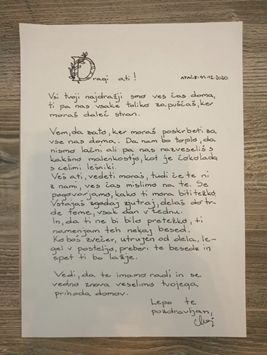 Dragi ati!
APAČE, 11.12.2020
Vsi tvoji najdražji smo ves čas doma,
ti pa nas vsake toliko zapuščaš, ker
moraš daleč stran.
Vem, da zato, ker moraš poskrbeti za
vse nas doma,. Da nam bo toplo, da
nismo lačni ali pa nas razveseliš s
kakšno malenkostjo, kot je čokolada
s celimi lešniki.
Veš ati, vedeti moraš, tudi če te ni
z nam, ves čas mislimo na te. Se
pogovarjamo, kako ti mora biti težko.
Vstajaš zgodaj zjutraj, delaš do
trde teme, vsak dan v tednu.
In, da ti ne bi bilo pretežko, ti
namenjam teh nekaj besed.
Ko boš zvečer, utrujen od dela, le-
gel v posteljo, preberi te besede in
spet ti bo lažje.
Vedi, da te imamo radi in se
vedno znova veselimo tvojega
prihoda domov.
Lepo te
pozdravljam,